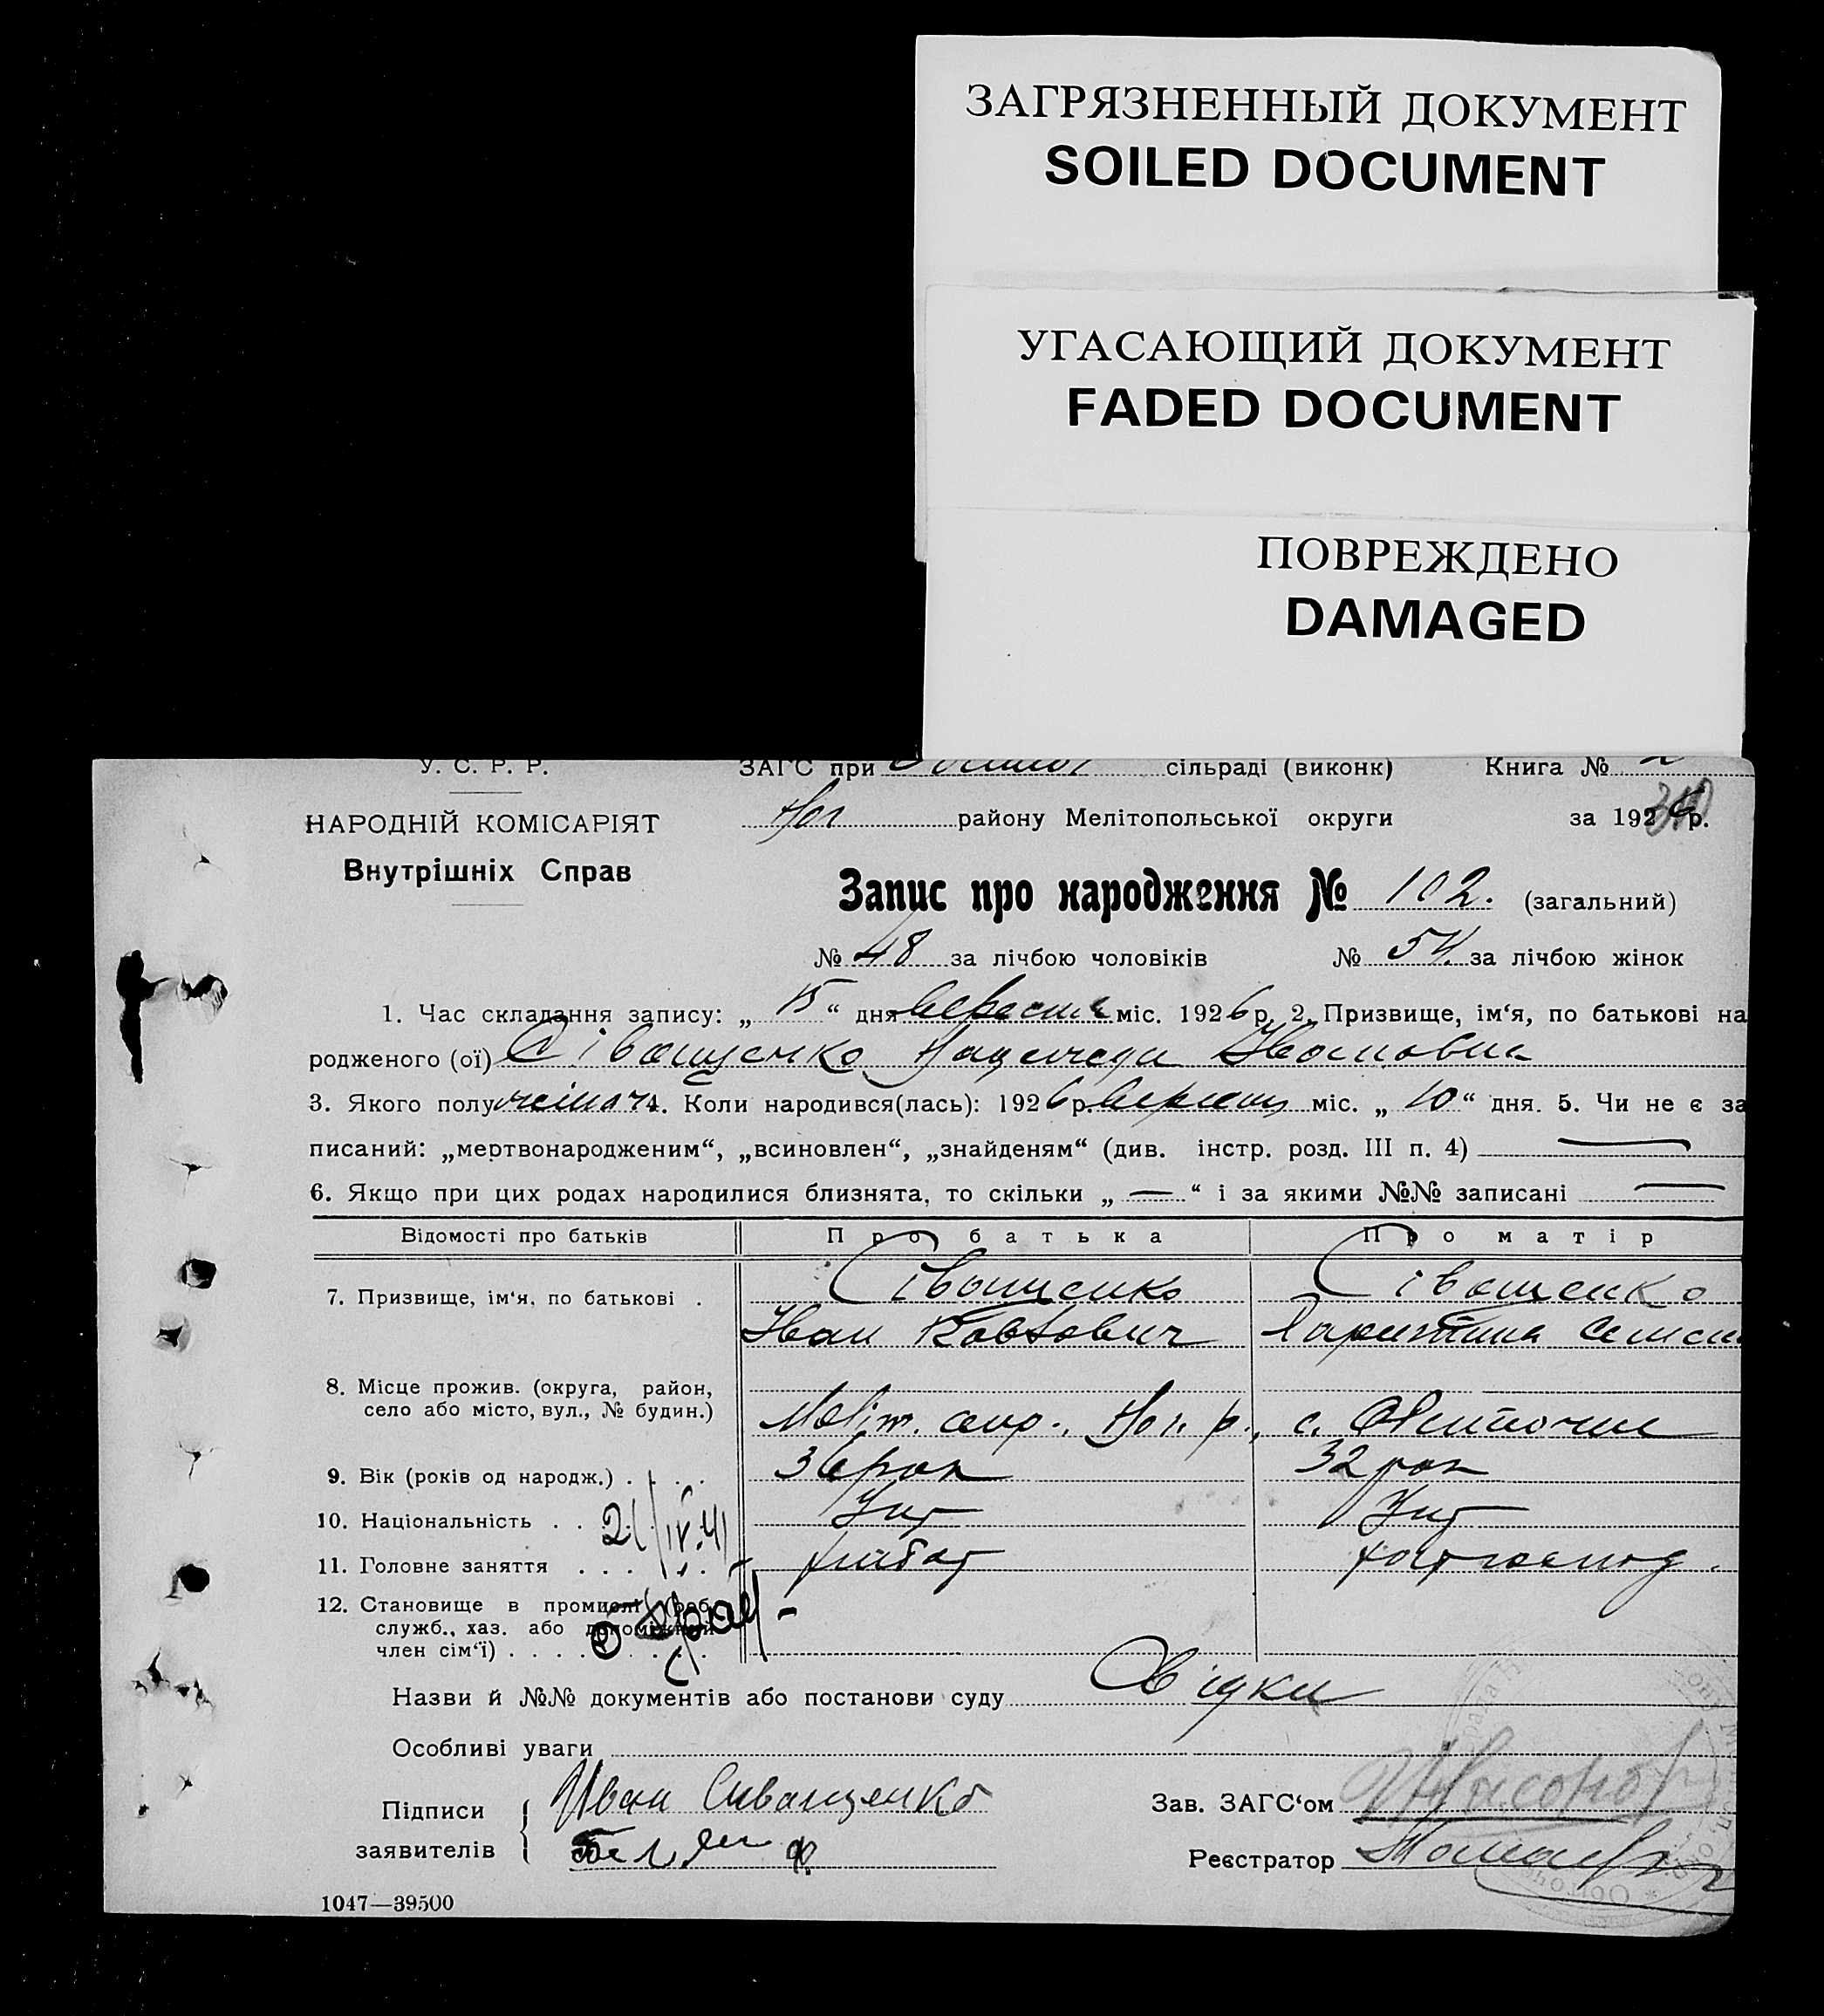 ЗАГРЯЗНЕННЫЙ ДОКУМЕНТ
SOILED DOCUMENT
УГАСАЮЩИЙ ДОКУМЕНТ
FADED DOCUMENT
ПОВРЕЖДЕНО
DAMAGED
У. С. Р. Р. ЗАГС при сільраді (виконк) Книга № 2
НАРОДНІЙ КОМІСАРІЯТ Ног району Мелітопольської округи за 1926 р.
Внутрішніх Справ
Запис про народження № 102. (загальний)
№ 48 за лічбою чоловіків № 54 за лічбою жінок
1. Час складання запису: „ 15 “ дня вересня міс. 1926 р. 2. Призвище, ім‘я, по батькові на
родженого (ої) Сіващенко Ивановна
3. Якого полу жіноч 4. Коли народився(лась): 1926 р. вересня міс. „ 10 “ дня. 5. Чи не є за
писаний: „мертвонародженим“, „всиновлен“, „знайденям“ (див. інстр. розд. III п. 4) —
6. Якщо при цих родах народилися близнята, то скільки „ — “ і за якими №№ записані —
Відомості про батьків Про батька Про матір
7. Призвище, ім‘я, по батькові . Сіващенко Сіващенко
Иван
8. Місце прожив. (округа, район,
село або місто, вул., № будин.) Меліт. окр., Ног. р., с.
9. Вік (років од народж.) . . . . 36 рок 32 рок
10. Національність . . Укр Укр
21/IV.41
11. Головне заняття . . . . . .
12. Становище в промислі (роб.
служб., хаз. або допоміжний
член сім‘ї) . . . . . . . .
Назви й №№ документів або постанови суду Свідки
Особливі уваги
Підписи Иван Сиващенко Зав. ЗАГС‘ом
заявителів Реєстратор
1047—39500